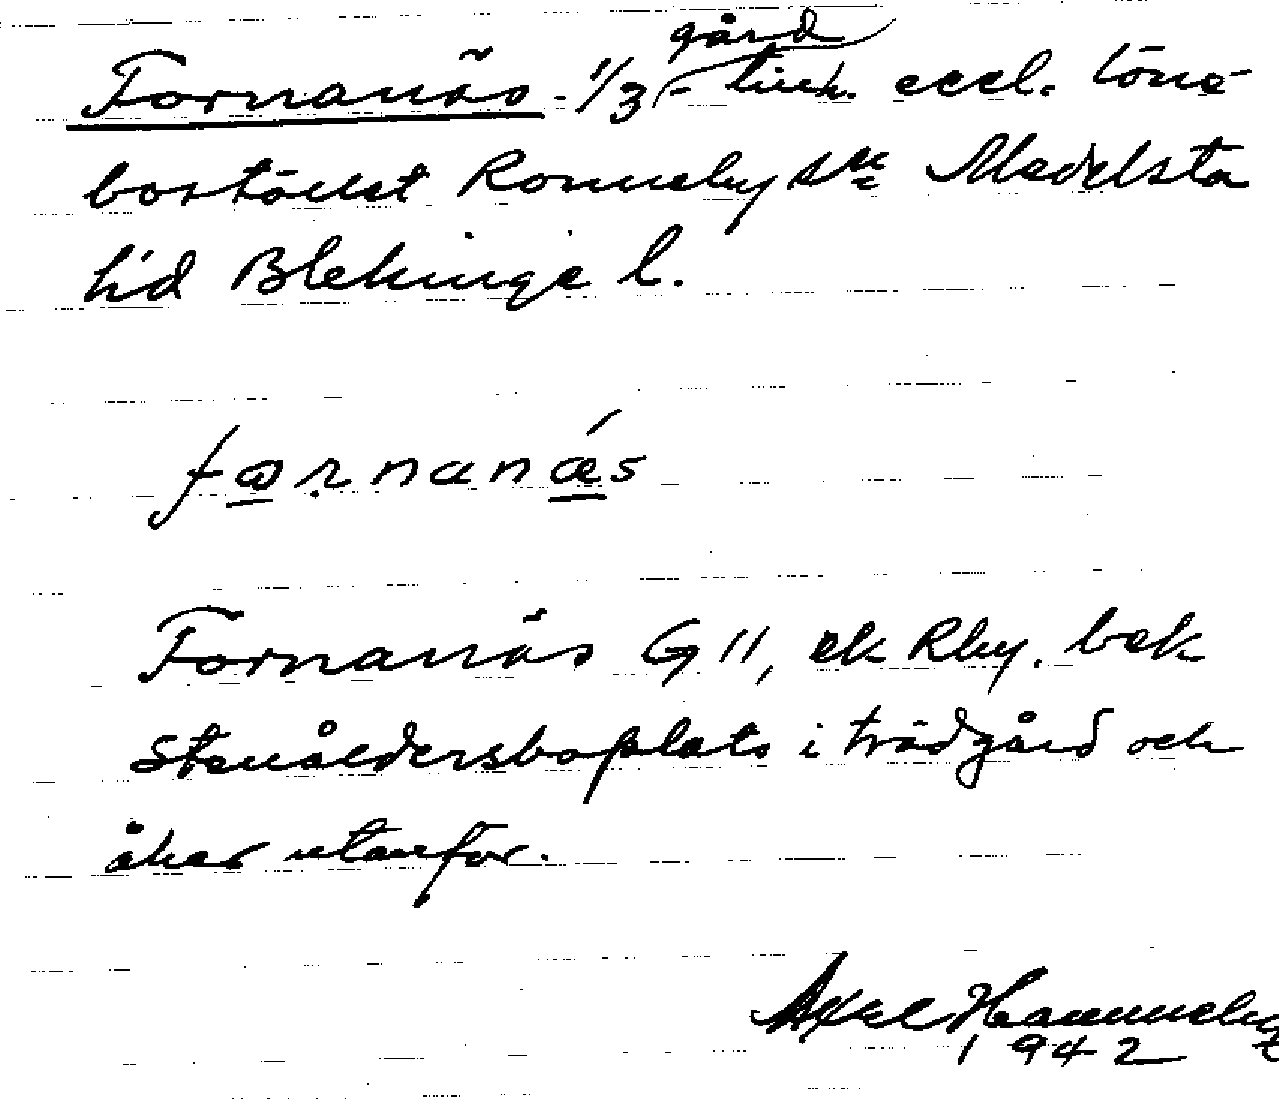 gård
Fornanäs 1/3 - eccl. löne-
bostället Ronneby sn Medelsta
hd Blekinge l.
Fornanäs G 11, ek Rby. bek
Stenåldersboplats i trädgård och
åker utanför.
Axel Hammeby
1942